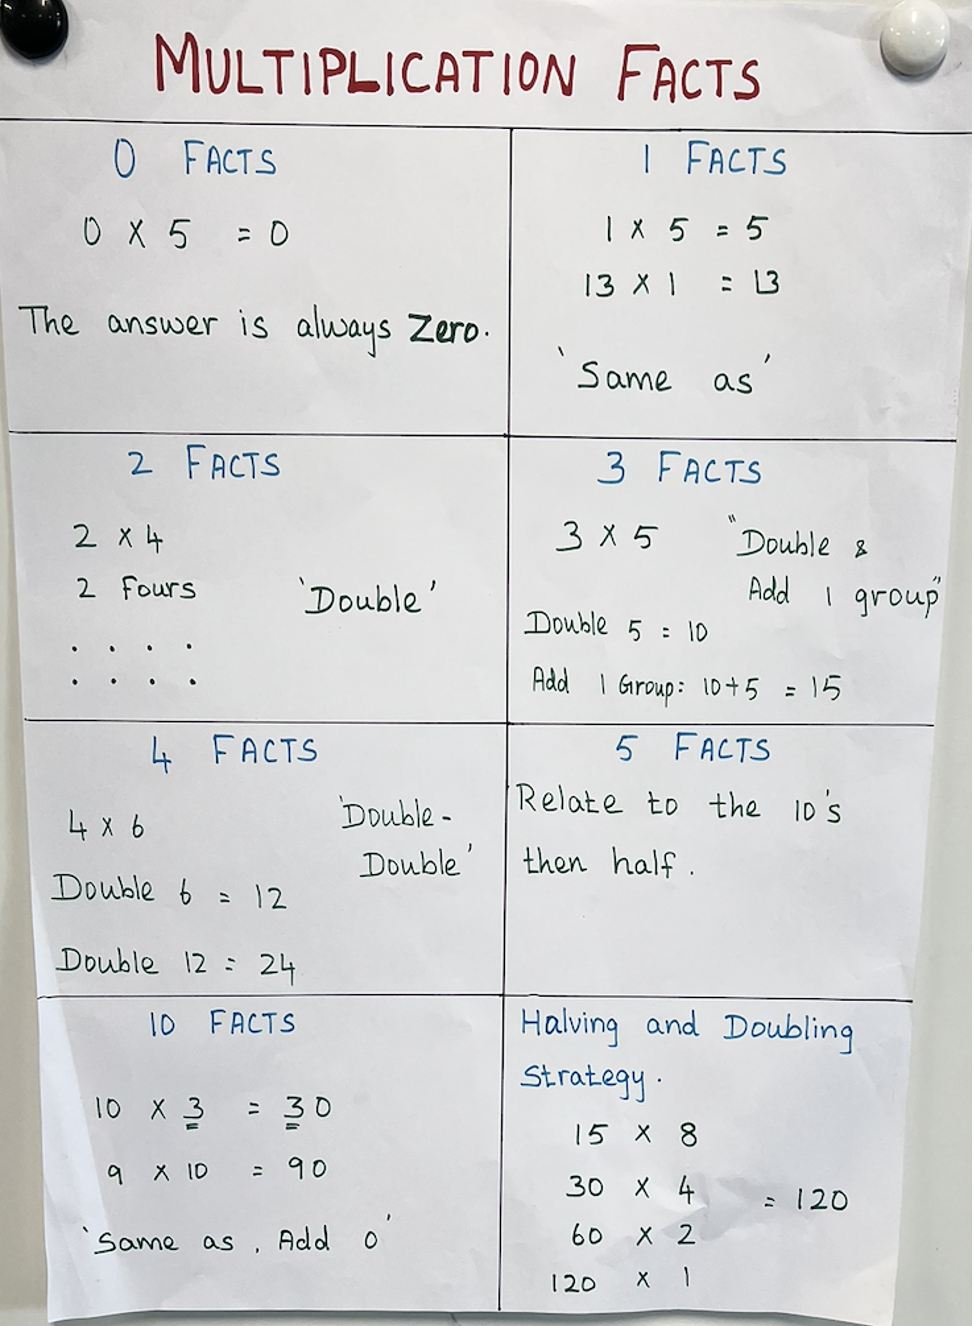 MULTIPLICATION FACTS
0 FACTS
0 X 5 = 0
The answer is always Zero.
1 FACTS
1 X 5 = 5
13 X 1 = 13
'Same as'
2 FACTS
2 X 4
2 Fours
'Double'
. . . .
. . . .
3 FACTS
3 X 5
"Double &
Add 1 group"
Double 5 = 10
Add 1 Group: 10+5 = 15
4 FACTS
4 X 6
'Double-
Double'
Double 6 = 12
Double 12 = 24
5 FACTS
Relate to the 10's
then half.
10 FACTS
10 X 3 = 30
9 X 10 = 90
'Same as, Add 0'
Halving and Doubling
Strategy.
15 X 8
30 X 4 = 120
60 X 2
120 X 1